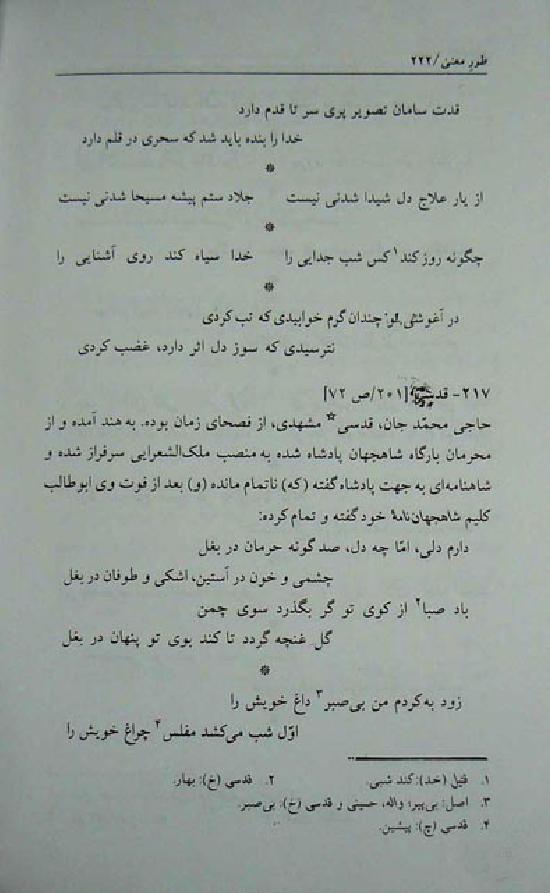 طور معنی / ۲۲۲
قدت سامان تصویر پری سر تا قدم دارد
خدا را بنده باید شد که سحری در قلم دارد
*
از یار علاج دل شیدا شدنی نیست جلاد ستم پیشه مسیحا شدنی نیست
*
چگونه روز کند۱ کس شب جدایی را خدا سیاه کند روی آشنایی را
*
در آغوشش چندان گرم خوابیدی که تب کردی
نترسیدی که سوز دل اثر دارد، غضب کردی
۲۱۷- [۲۰۱/ص ۷۲]
حاجی محمّد جان، قدسی* مشهدی، از فصحای زمان بوده. به هند آمده و از
محرمان بارگاه شاهجهان پادشاه شده به منصب ملک‌الشعرایی سرفراز شده و
شاهنامه‌ای به جهت پادشاه گفته (که) ناتمام مانده (و) بعد از فوت وی ابوطالب
کلیم شاهجهان‌نامهٔ خود گفته و تمام کرده:
دارم دلی، امّا چه دل، صد گونه حرمان در بغل
چشمی و خون در آستین، اشکی و طوفان در بغل
باد صبا۲ از کوی تو گر بگذرد سوی چمن
گل غنچه گردد تا کند بوی تو پنهان در بغل
*
زود به کردم من بی‌صبر۳ داغ خویش را
اوّل شب می‌کشد مفلس۴ چراغ خویش را
۱. قتیل (خد): کند شبی. ۲. قدسی (خ): بهار.
۳. اصل: بی‌پیر؛ واله، حسینی و قدسی (خ): بی‌صبر.
۴. قدسی (چ): پیشین.